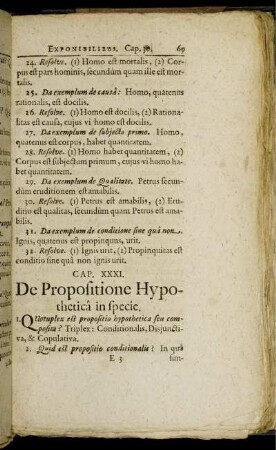 EXPONIBILIBUS. Cap. 30. 69
24. Resolve. (1) Homo est mortalis, (2) Cor-
pus est pars hominis, secundum quam ille est mor-
talis.
25. Da exemplum de causâ: Homo, quatenus
rationalis, est docilis.
26. Resolve. (1) Homo est docilis, (2) Rationa-
litas est causa, cujus vi homo est docilis.
27. Da exemplum de subjecto primo. Homo,
quatenus est corpus, habet quantitatem.
28. Resolve. (1) Homo habet quantitatem, (2)
Corpus est subjectum primum, cujus vi homo ha-
bet quantitatem.
29. Da exemplum de Qualitate. Petrus secun-
dùm eruditionem est amabilis.
30. Resolve. (1) Petrus est amabilis, (2) Eru-
ditio est qualitas, secundum quam Petrus est ama-
bilis.
31. Da exemplum de conditione sine quâ non.
Ignis, quatenus est propinquus, urit.
32. Resolve. (1) Ignis urit, (2) Propinquitas est
conditio sine quâ non ignis urit.
CAP. XXXI.
De Propositione Hypo-
theticâ in specie.
1. QUotuplex est propositio hypothetica seu com-
posita? Triplex: Conditionalis, Disjuncti-
va, & Copulativa.
2. Quid est propositio conditionalis? In quâ
E 3 sun-